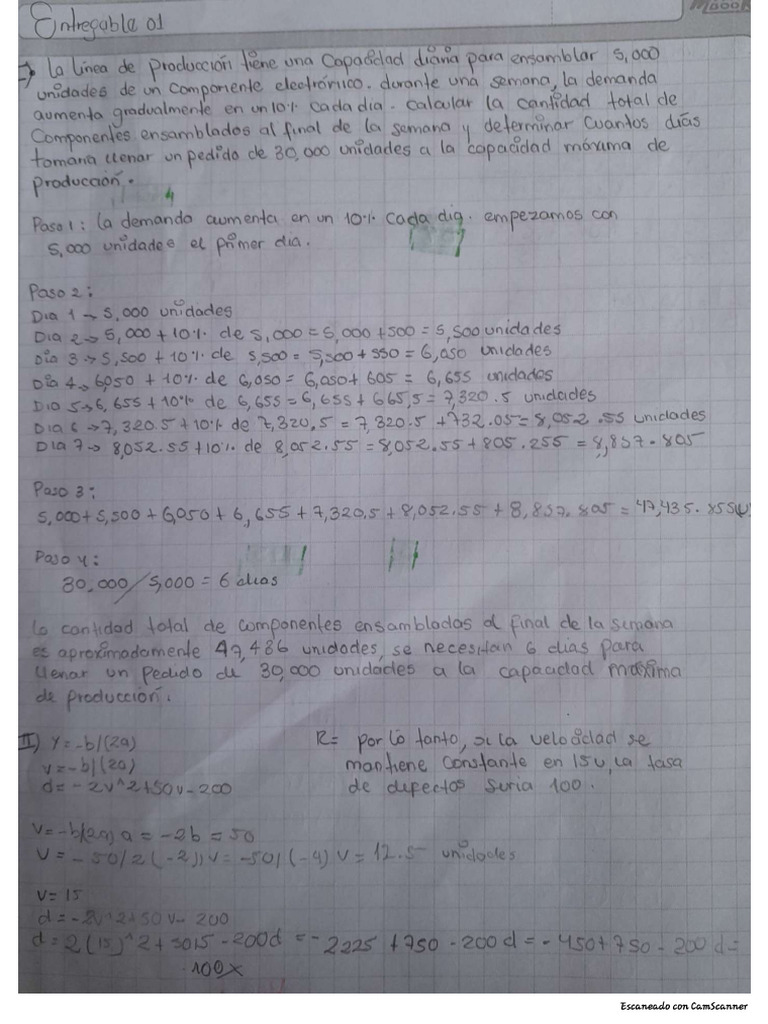 Entregable 01
La línea de producción tiene una capacidad diaria para ensamblar 5,000
unidades de un componente electrónico. durante una semana, la demanda
aumenta gradualmente en un 10% cada dia. calcular la cantidad total de
Componentes ensamblados al final de la semana y determinar cuantos días
tomaria llenar un pedido de 30,000 unidades a la capacidad máxima de
producción.
Paso 1: la demanda aumenta en un 10% cada dia. empezamos con
5,000 unidades el primer dia.
Paso 2:
Dia 1 → 5,000 unidades
Dia 2 → 5,000 + 10% de 5,000 = 5,000 + 500 = 5,500 unidades
Dia 3 → 5,500 + 10% de 5,500 = 5,500 + 550 = 6,050 unidades
Dia 4 → 6,050 + 10% de 6,050 = 6,050 + 605 = 6,655 unidades
Dia 5 → 6,655 + 10% de 6,655 = 6,655 + 665,5 = 7,320.5 unidades
Dia 6 → 7,320.5 + 10% de 7,320.5 = 7,320.5 + 732.05 = 8,052.55 unidades
Dia 7 → 8,052.55 + 10% de 8,052.55 = 8,052.55 + 805.255 = 8,857.805
Paso 3:
5,000 + 5,500 + 6,050 + 6,655 + 7,320.5 + 8,052.55 + 8,857.805 = 47,435.855
Paso 4:
30,000 / 5,000 = 6 dias
La cantidad total de componentes ensamblados al final de la semana
es aproximadamente 47,486 unidades, se necesitan 6 dias para
llenar un pedido de 30,000 unidades a la capacidad maxima
de producción.
II) Y = -b/(2a)
v = -b/(2a)
d = -2v^2+50v-200
R= por lo tanto, si la velocidad se
mantiene constante en 15u, la tasa
de defectos seria 100.
V = -b/(2a) a = -2 b = 50
V = -50/2(-2)) V = -50/(-4) V = 12.5 unidades
V = 15
d = -2v^2+50v-200
d = 2(15)^2+5015-200d = -2225+750-200d = -450+750-200d =
100x
Escaneado con CamScanner